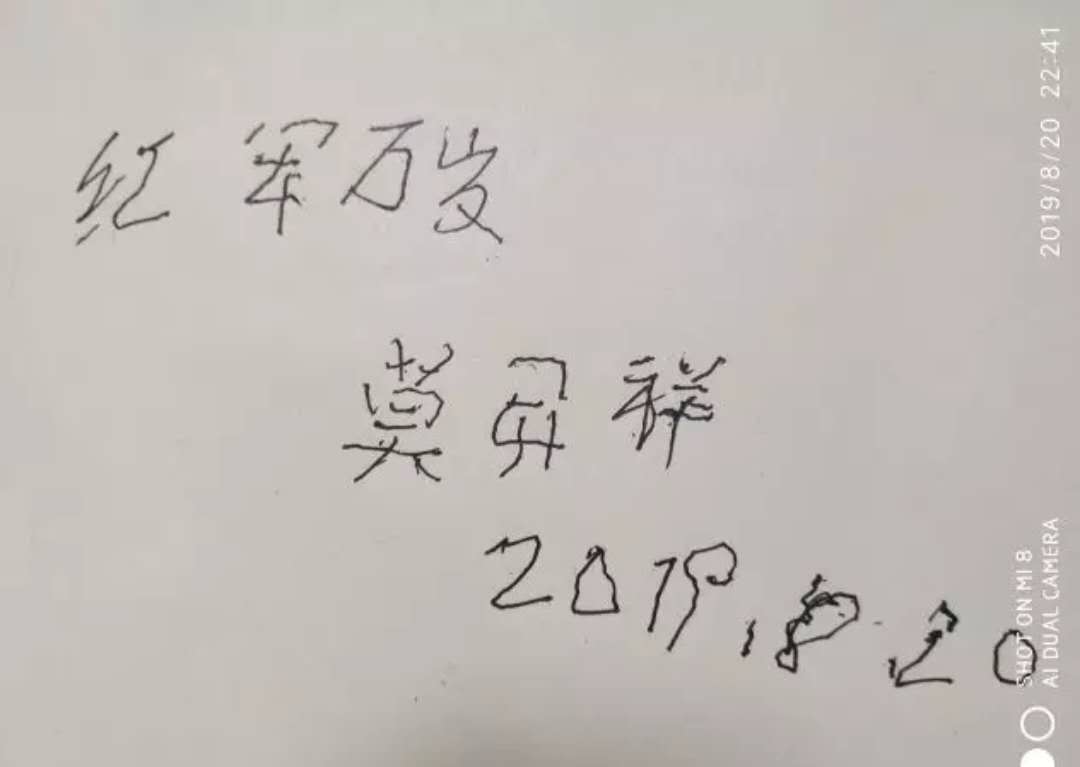 红军万岁
莫异祥
2019.8.20
2019/8/20 22:41
SHOT ON MI 8
AI DUAL CAMERA